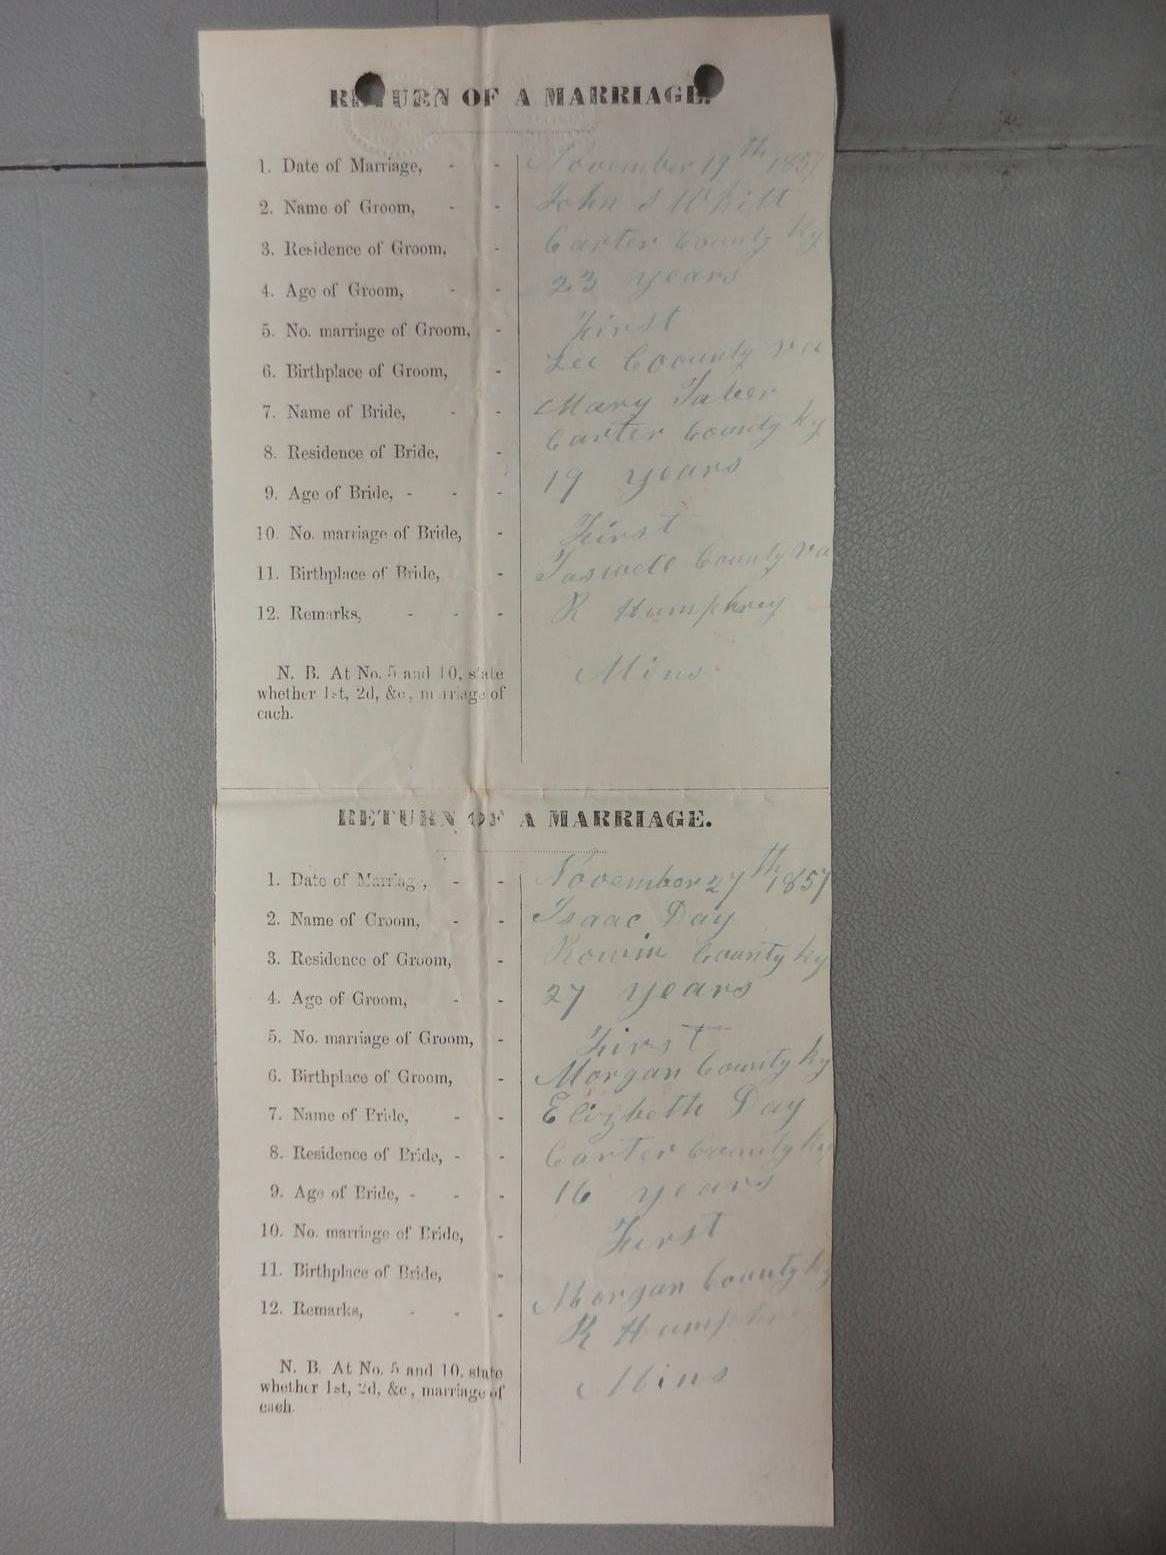 RETURN OF A MARRIAGE.
1. Date of Marriage, - - November 19th 1857
2. Name of Groom, - - John S Whitt
3. Residence of Groom, - Carter County Ky
4. Age of Groom, - - 23 years
5. No. marriage of Groom, - First
6. Birthplace of Groom, - Lee Coounty va
7. Name of Bride, - - Mary Taber
8. Residence of Bride, - Carter County Ky
9. Age of Bride, - - - 19 years
10. No. marriage of Bride, - First
11. Birthplace of Bride, - Taswell County va
12. Remarks, - - - R Humphrey
N. B. At No. 5 and 10, state Mins
whether 1st, 2d, &c, marriage of
each.
RETURN OF A MARRIAGE.
1. Date of Marriage, - - November 27th 1857
2. Name of Groom, - - Isaac Day
3. Residence of Groom, - Rowin County Ky
4. Age of Groom, - - 27 years
5. No. marriage of Groom, - First
6. Birthplace of Groom, - Morgan County Ky
7. Name of Bride, - - Elizbeth Day
8. Residence of Bride, - - Carter County Ky
9. Age of Bride, - - - 16 years
10. No. marriage of Bride, - First
11. Birthplace of Bride, - Morgan County Ky
12. Remarks, - - - R Humphrey
N. B. At No. 5 and 10, state Mins
whether 1st, 2d, &c, marriage of
each.